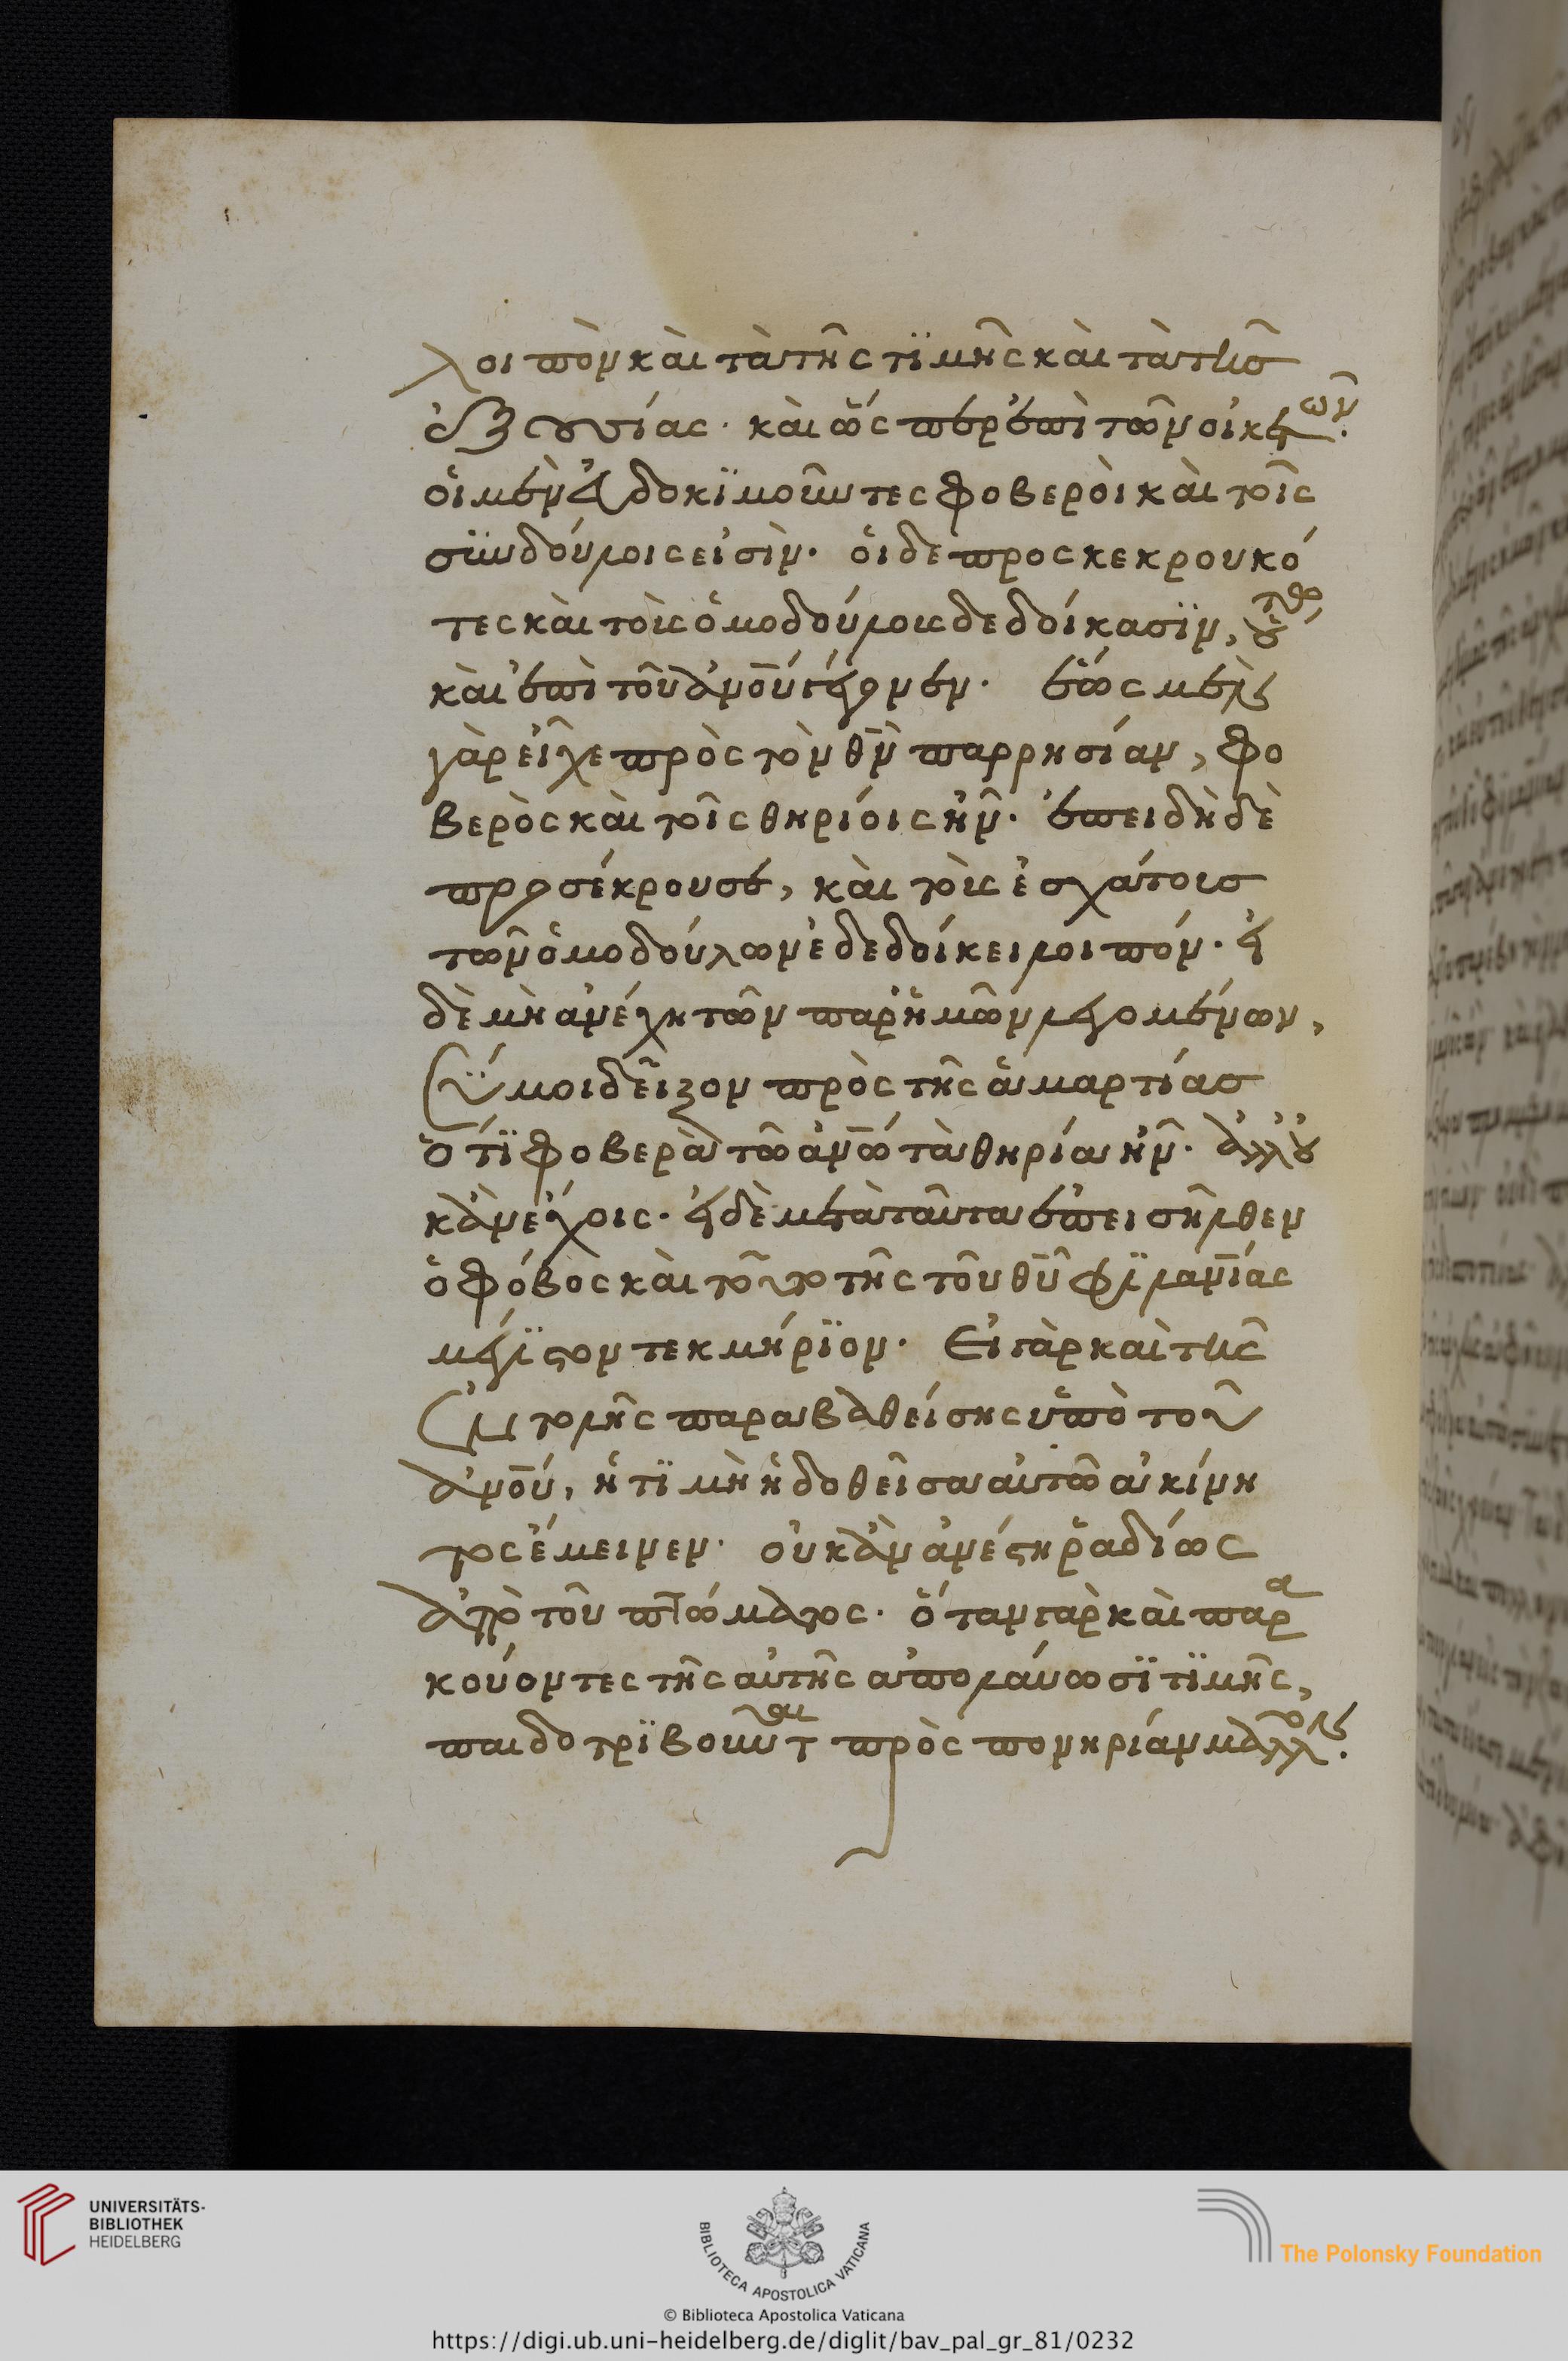 λοιπὸν καὶ τὰ τῆς τϊμῆς καὶ τὰ τῆς
ἐξουσίας. καὶ ὥσπερ ἐπὶ τῶν οἰκετῶν.
οἱ μὲν εὐδοκϊμοῦντες φοβεροὶ καὶ τοῖς
συνδούλοις εἰσὶν. οἱ δε προσκεκρουκό
τες καὶ τοὶς ὁμοδούλοις δεδοίκασϊν, οὕτω
καὶ ἐπὶ τοῦ ἀνου γέγονεν. ἕως μὲν
γὰρ εἶχε πρὸς τὸν θν παρρησίαν, φο
βερὸς καὶ τοῖς θηρίοις ἦν. ἐπειδὴ δὲ
προσέκρουσε, καὶ τοὶς ἐσχάτοις
τῶν ὁμοδούλων ἐδεδοίκει λοιπόν. εἰ
δὲ μὴ ἀνέχη τῶν παρ ἡμῶν λεγομένων,
σύ μοι δεῖξον πρὸ τῆς ἁμαρτίας
ὅτϊ φοβερὰ τῶ ἀνω τὰ θηρία ἦν. ἀλλ οὐ
κ ἂν ἔχοις. εἰ δὲ μετὰ ταῦτα ἐπεισῆλθεν
ὁ φόβος καὶ τοῦτο τῆς τοῦ θυ φϊλανίας
μέγϊστον τεκμήρϊον. Εἰ γὰρ καὶ τῆς
ἐντολῆς παραβαθείσης ὑπὸ τοῦ
ἀνου, ἡ τϊμὴ ἡ δοθεῖσα αὐτῶ ἀκίνη
τος ἔμεινεν. οὐκ ἂν ἀνέστη ῥαδίως
ἀπὸ τοῦ πτώματος. ὅταν γαρ καὶ παρα
κούοντες τῆς αὐτῆς ἀπολαύωσϊ τϊμῆς,
παιδοτρϊβοῦνται πρὸς πονηρίαν μᾶλλον.
UNIVERSITÄTS-
BIBLIOTHEK
HEIDELBERG
BIBLIOTECA APOSTOLICA VATICANA
The Polonsky Foundation
© Biblioteca Apostolica Vaticana
https://digi.ub.uni-heidelberg.de/diglit/bav_pal_gr_81/0232